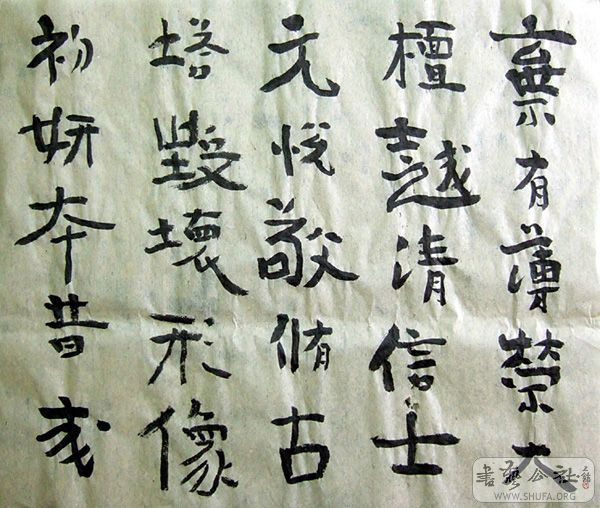 有薄大
檀越清信士
元悅敬脩古
塔毀壞形像
初妍夲昔
書藝公社
WWW.SHUFA.ORG